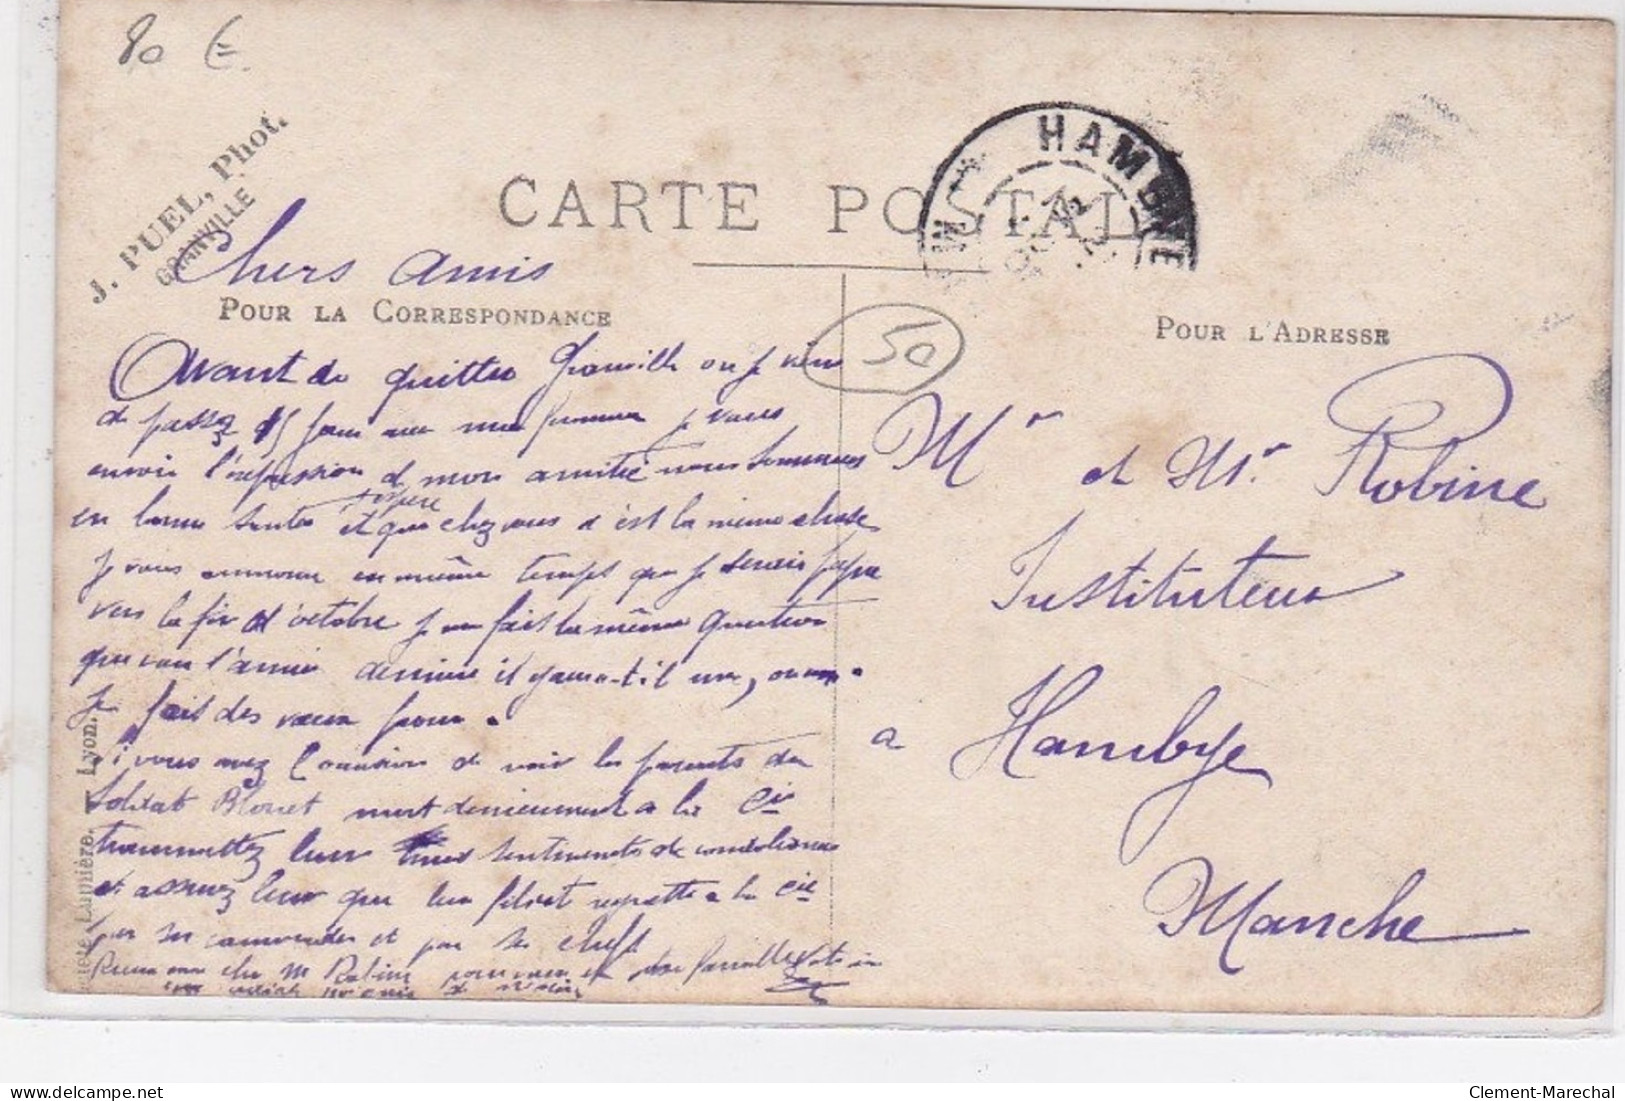 80 €
J. PUEL, Phot.
GRANVILLE
CARTE POSTALE
HAMBYE
Chers amis
POUR LA CORRESPONDANCE
POUR L'ADRESSE
50
Avant de quitter Granville ou je viens
de passez 15 jour avec ma femme je vous
envoie l'expression de mon amitié nous sommes
en bonne santée et
j'espère
que chez vous s'est la meme chose
je vous annonce en même temps que je serais papa
vers la fin d'octobre je me fais la même question
que vous l'année dernière il y aura-t-il une, ou un.
Je fait des vœux pour.
Si vous avez l'occasion de voir les parents du
Soldat Blouet mort dernièrement a la Cie
transmettez leur mes sentiments de condoléances
et assurez leur que leur fils est regretté a la Cie
par ses camarades et par ses chefs
Mr et Mr. Robine
Instituteur
a Hambye
Manche
Lumière. Lyon.
Clement-Marechal